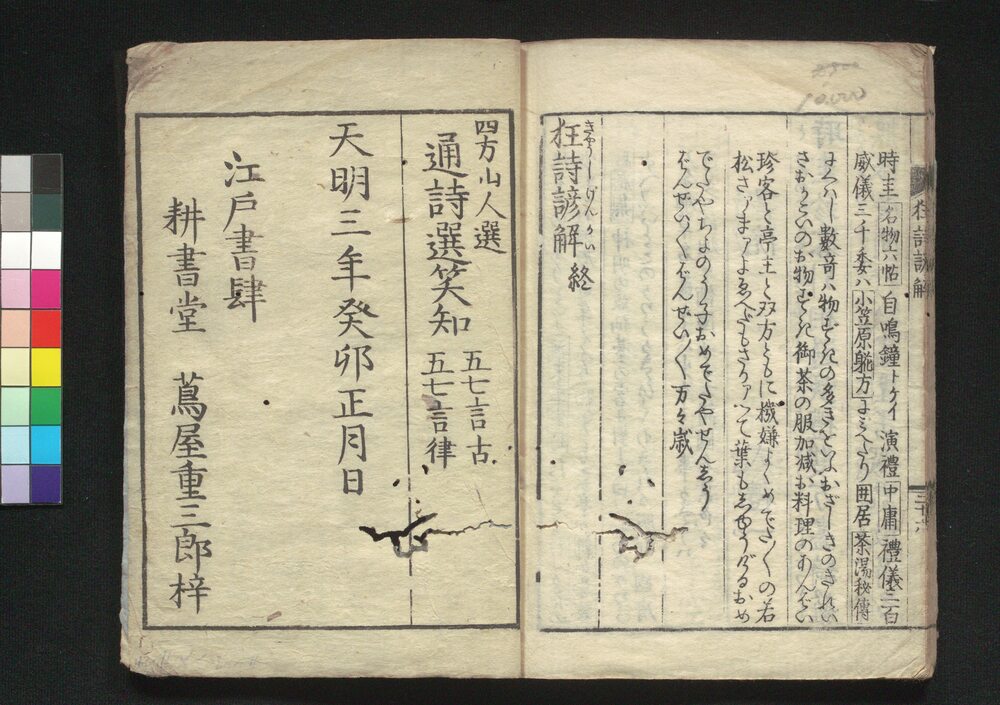 時圭 名物六帖 自鳴鐘トケイ 演禮 中庸 禮儀三百
威儀三千委ハ 小笠原躾方 よみたり 囲居 茶湯秘傳
にくハし數竒ハ物ずきの多きをいふおざしきのきれい
さおかこいのお物ずき御茶の服加减お料理のあんばい
珍客と亭主と双方ともに機嫌よくめでたくの若
松さァまァよゑへだもさかァへて葉もしゆげるおめ
でたやちよのう子おめでたやせんしう
ばんぜいくばんぜいく万々歳
きやうしげんかい
狂詩諺解 終
狂詩諺解
三十六
四方山人選
通詩選笑知 五七言古
五七言律
天明三年癸卯正月日
江戸書肆
耕書堂 蔦屋重三郎梓
10,000